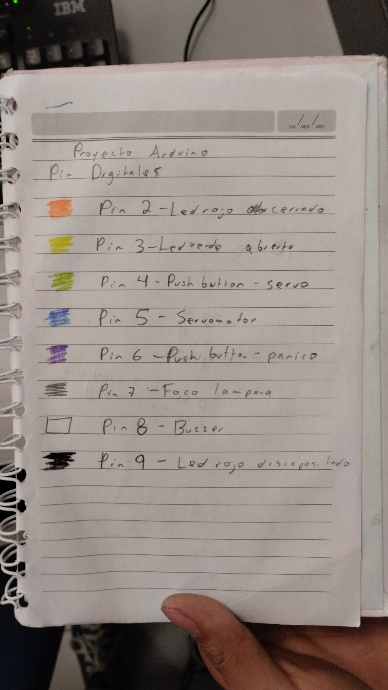 IBM
Proyecto Arduino
Pin Digitales
Pin 2 - Led rojo cerrado
Pin 3 - Led verde abierto
Pin 4 - Push button - servo
Pin 5 - Servomotor
Pin 6 - Push button - panico
Pin 7 - Foco lampara
Pin 8 - Buzzer
Pin 9 - Led rojo